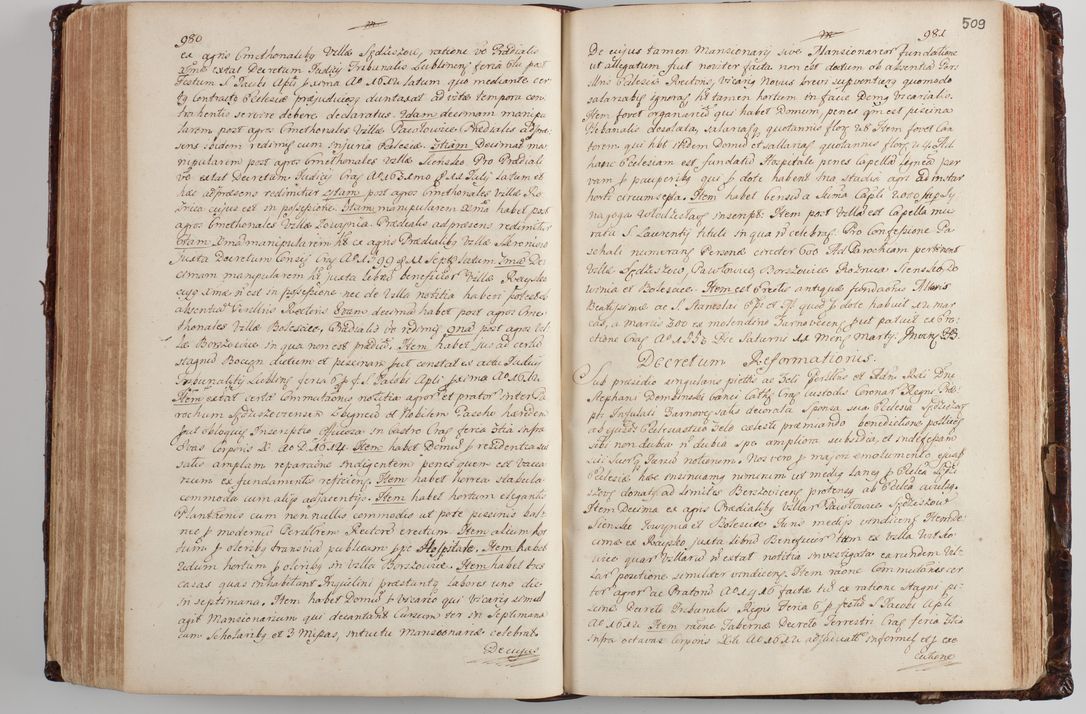 980
ex agris Cmethonalibq Villæ Sędziszow, ratione vo Prædialis
Xmæ extat Decretum Judicij Tribunalis Lublinens feria 6ta post
Festum S. Jacobi Apli pxima Ao 1612 latum quo mediante cer
tq Contractq Ecclesiæ præjudiciosq duntaxat ad vitæ tempora con
trahentis servire debere declaratus. 2dam decimam manipu
larem post agros Cmethonales Villæ Pawłowice Prædiales adpræ
sens ibidem redimq cum injuria Ecclesiæ. 3tiam Decimas ma
nipularem post agros Cmethonales Villæ Siensko Pro Prædiali
vo extat Decretum Judicij Crac Ao 1631mo 8 11 Julij latum et
hæc adpræsens redimitur 4tam post agros Cmethonales Villæ Ro
żnica cujus est in possessione. 5tam manipularem Xmā habet post
agros Cmethonales Villæ Łowynia. Prædialis adpræsens redimitur
6tam Xmā manipularem ht ex agris Prædialibq Villæ
juxta Decretum Consis Crac Ao 1599 8 11 Septb latum. 7mæ De
cimam manipularem ht juxta Librū beneficior Villæ Raysko
cujq Xmæ n est in possessione nec de Villa notitia haberi potest ob
absentiā Perillris Rectoris 8vam decimā habet post agros Cme
thonales Villæ Bolescice, Prædialis vo redimiq 9nā post agros Vil
læ Borszowice in qua non est prædiū. Item habet jus ad certū
stagnū Bocyn dictum et piscinam put constat ex actis Judicij
Tribunalitq Lublinq feria 6 p f. S Jacobi Apli pxima Ao 1612.
Item extat certa Commutationis notitia agror et prator inter Pa
rochum Sędziszoviensem Zbygneiū et Nobilem Pasche hæredem
put obloquiq Inscriptio officiosa in Castro Crac feria 3tia infra
Octas Corporis X. Ao D. 1614. Item habet Domū p residentia sua
satis amplam reparaōne indigentem penes quem est vacca
rium ex fundamentis reficiens. Item habet horrea stabula
commoda cum alijs adjacentijs. Item habet hortum elegantis
Plantationis cum non nullis commodis ut pote piscinis bal
neo p modernū Perillrem Rectorē erectum Item alium hor
tum p oleribq trans viā publicam ppe Hospitale. Item habet
3dum hortum p oleribq in Villa Borszowice. Item habet tres
casas quas inhabitant Inquilini præstantq labores uno die
in septimana. Item habet Domū p Vicario qui Vicariq simul
agit Mansionarium qui decantant Cursum ter in Septimana
cum Scholaribq et 3 Missas, intuitu Mansionariæ celebrat
De cujus
981
509
De cujus tamen Mansionarij sive Mansionarior fundatione
ut allegatum fuit noviter facta non est datum ob absentiā Per
illris Ecclesiæ Rectoris, vicariq Novus brevi superventorq quomodo
salariabiq ignorat ht tamen hortum in facie Domq Vicarialis.
Item fovet organariū qui habet Domum, penes qm est piscina
Plebanalis desolata, salariatq quotannis flor 48. Item fovet Can
torem qui hbt ibidem Domū et sallariatq quotannis flor 24. Ad
hanc Ecclesiam est fundatū Hospitale penes Capellā ligneā par
vam p pauperibq qui p dote habent tria stadia agri ad instar
horti circumsepta. Item habet censū a Summa Capli 2000 Syna
nagoga Wlodzislaviq inscript: Item post Villā est Capella mu
rata S. Laurentij tituli in qua n celebrat. Pro Confessione Pa
schali numerant Personæ circiter 600 Ad Parochiam pertinent
Villæ Sędziszów, Pawłowice, Borszowice Rożnica Siensko Ło
winia et Bolescice. Item est Eccliis antiquæ fundaōnis Altaris
Beatissimæ ac S. Stanislai Epi et M. quod p dote habuit 12 mar
cas, a marcis 300 ex molendino Tarnovicens, put patuit ex Ere
ctione Crac Ao 1553 Die Saturni 11 Mens Martij.
Decretum Reformationis.
Sub præsidio singularis pietatis ac Zeli Perillris et Adm Rndi Dni
Stephani Dembinski Canci Cathlis Crac Custodis Coronar Regni Præ
pti Infulati Tarnoviensis decorata Sponsa sua Ecclesia Sędziszov
ab ejusdē Ecclesiastico Zelo cælesti præmiando benedictione postliq
siti non dubia n dubia spe ampliora subsidia, et indefessam
sui suorq Jurium notionem. Nos vero p majori emolumento ejusq
Ecclesiæ hæc insinuamq nimirum ut medijq Laneq p Ecclia Sędzi
szov donatq ad limites Borszovicens protensq ab Ecclia aculiq.
Item Decima ex agris Prædialibq Villar Pawłowice Sędziszow
Siensko Łowynia et Bolescice Juris medijs vindicens, Item De
cima ex Raysko juxta librū Beneficior Item ex villa Wolso
vice quar Villarū n extat notitia investigata earundem Vil
lar positione similiter vindicens. Item raōne Commutaōnis cer
tor agror ac Pratorū Ao 1416 factæ tū ex ratione Stagni pi
scinæ Decreto Tribunalis Regni Feria 6 p festū S. Jacobi Apli
Ao 1612 Item raōne Tabernæ Decreto Terrestri Crac feria 3tia
infra octavas Corporis Xti Ao 1612 adjudicatæ informet eq exe
cutione